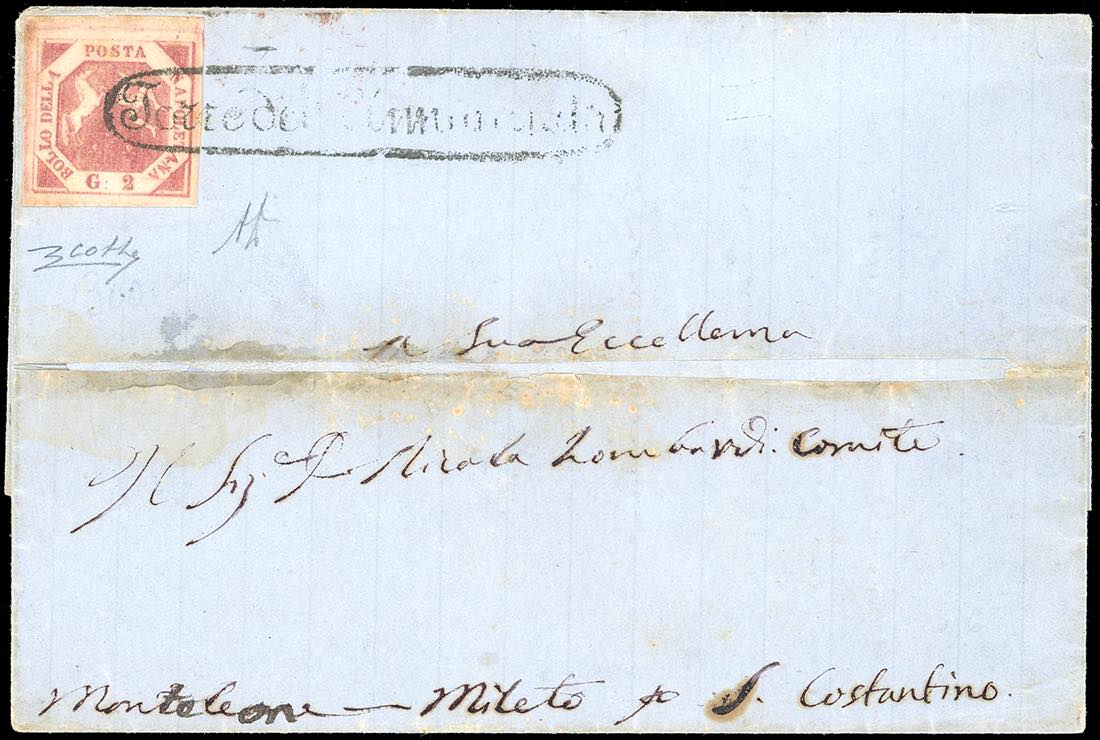 POSTA
BOLLO DELLA
NAPOLETANA
G. 2
Torre dell'Annunziata
a Sua Eccellenza
Il Sig. D. Nicola Lombardi Comite.
Monteleone — Mileto p S. Costantino.